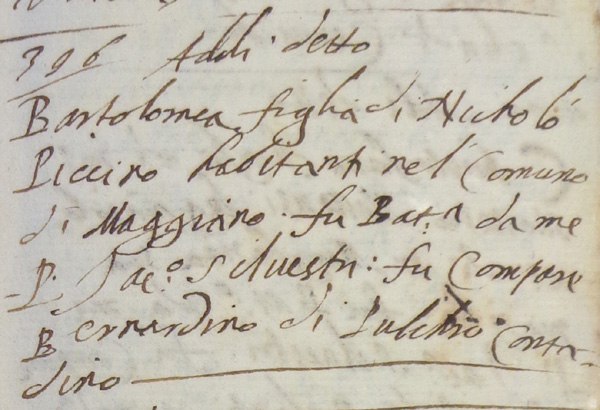 396 Addi detto
Bartolomea figlia di Nicholò
Piccino habitanti nel Comuno
di Maggiano. fu Bat.a da me
P. Jac.o Silvestri: fu Compare
Bernardino di Pulchio Conta-
dino